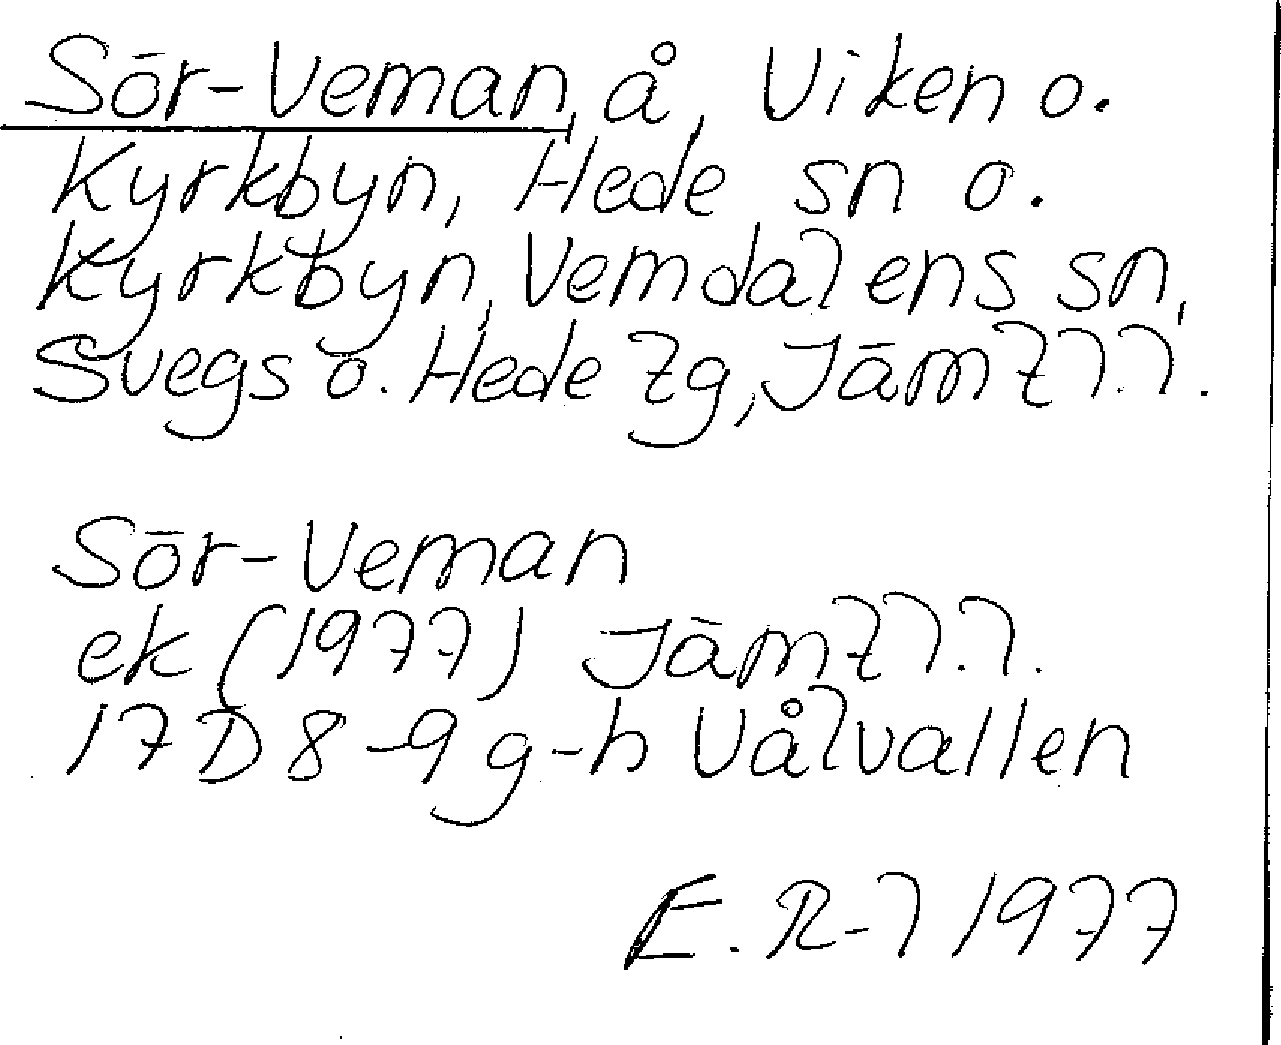 Sör-Veman, å, Viken o.
Kyrkbyn, Hede sn o.
Kyrkbyn, Vemdalens sn,
Svegs o. Hede tg, Jämtl.l.
Sör-Veman
ek (1977) Jämtl.l.
17D 8-9 g-h Vålvallen
E. R-l 1977